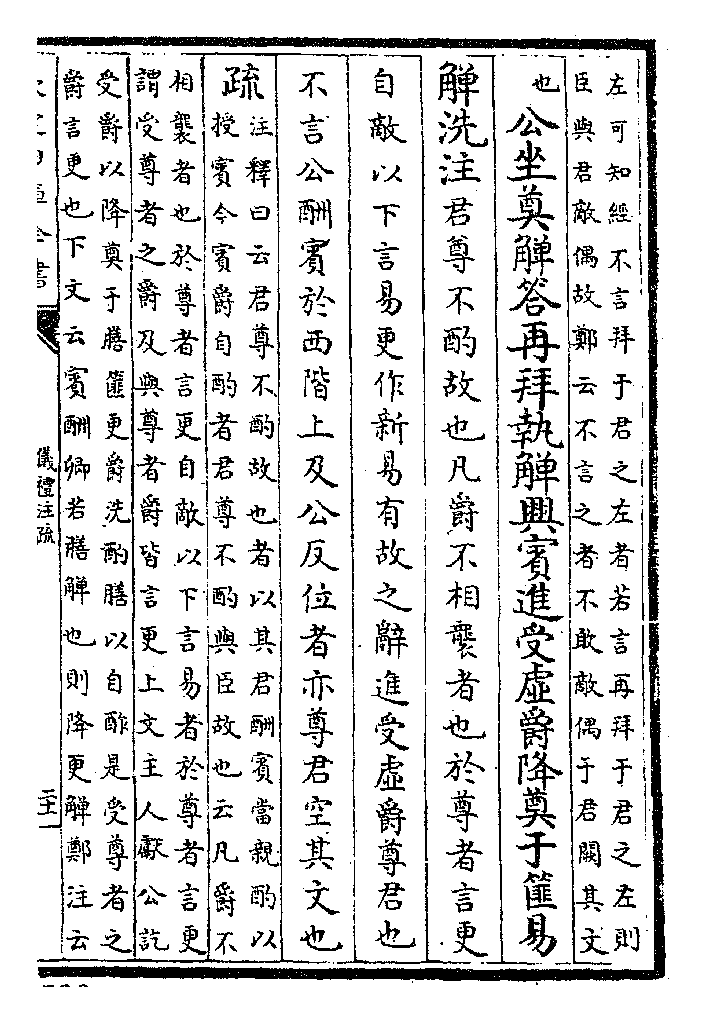 左可知經不言拜于君之左者若言再拜于君之左則
臣與君敵偶故鄭云不言之者不敢敵偶于君闕其文
也公坐奠觶答再拜執觶興賓進受虛爵降奠于篚易
觶洗注君尊不酌故也凡爵不相襲者也於尊者言更
自敵以下言易更作新易有故之辭進受虛爵尊君也
不言公酬賓於西階上及公反位者亦尊君空其文也
疏注釋曰云君尊不酌故也者以其君酬賓當親酌以
授賓今賓爵自酌者君尊不酌與臣故也云凡爵不
相襲者也於尊者言更自敵以下言易者於尊者言更
謂受尊者之爵及與尊者爵皆言更上文主人獻公訖
受爵以降奠于膳篚更爵洗酌膳以自酢是受尊者之
爵言更也下文云賓酬卿若膳觶也則降更觶鄭注云
儀禮注疏